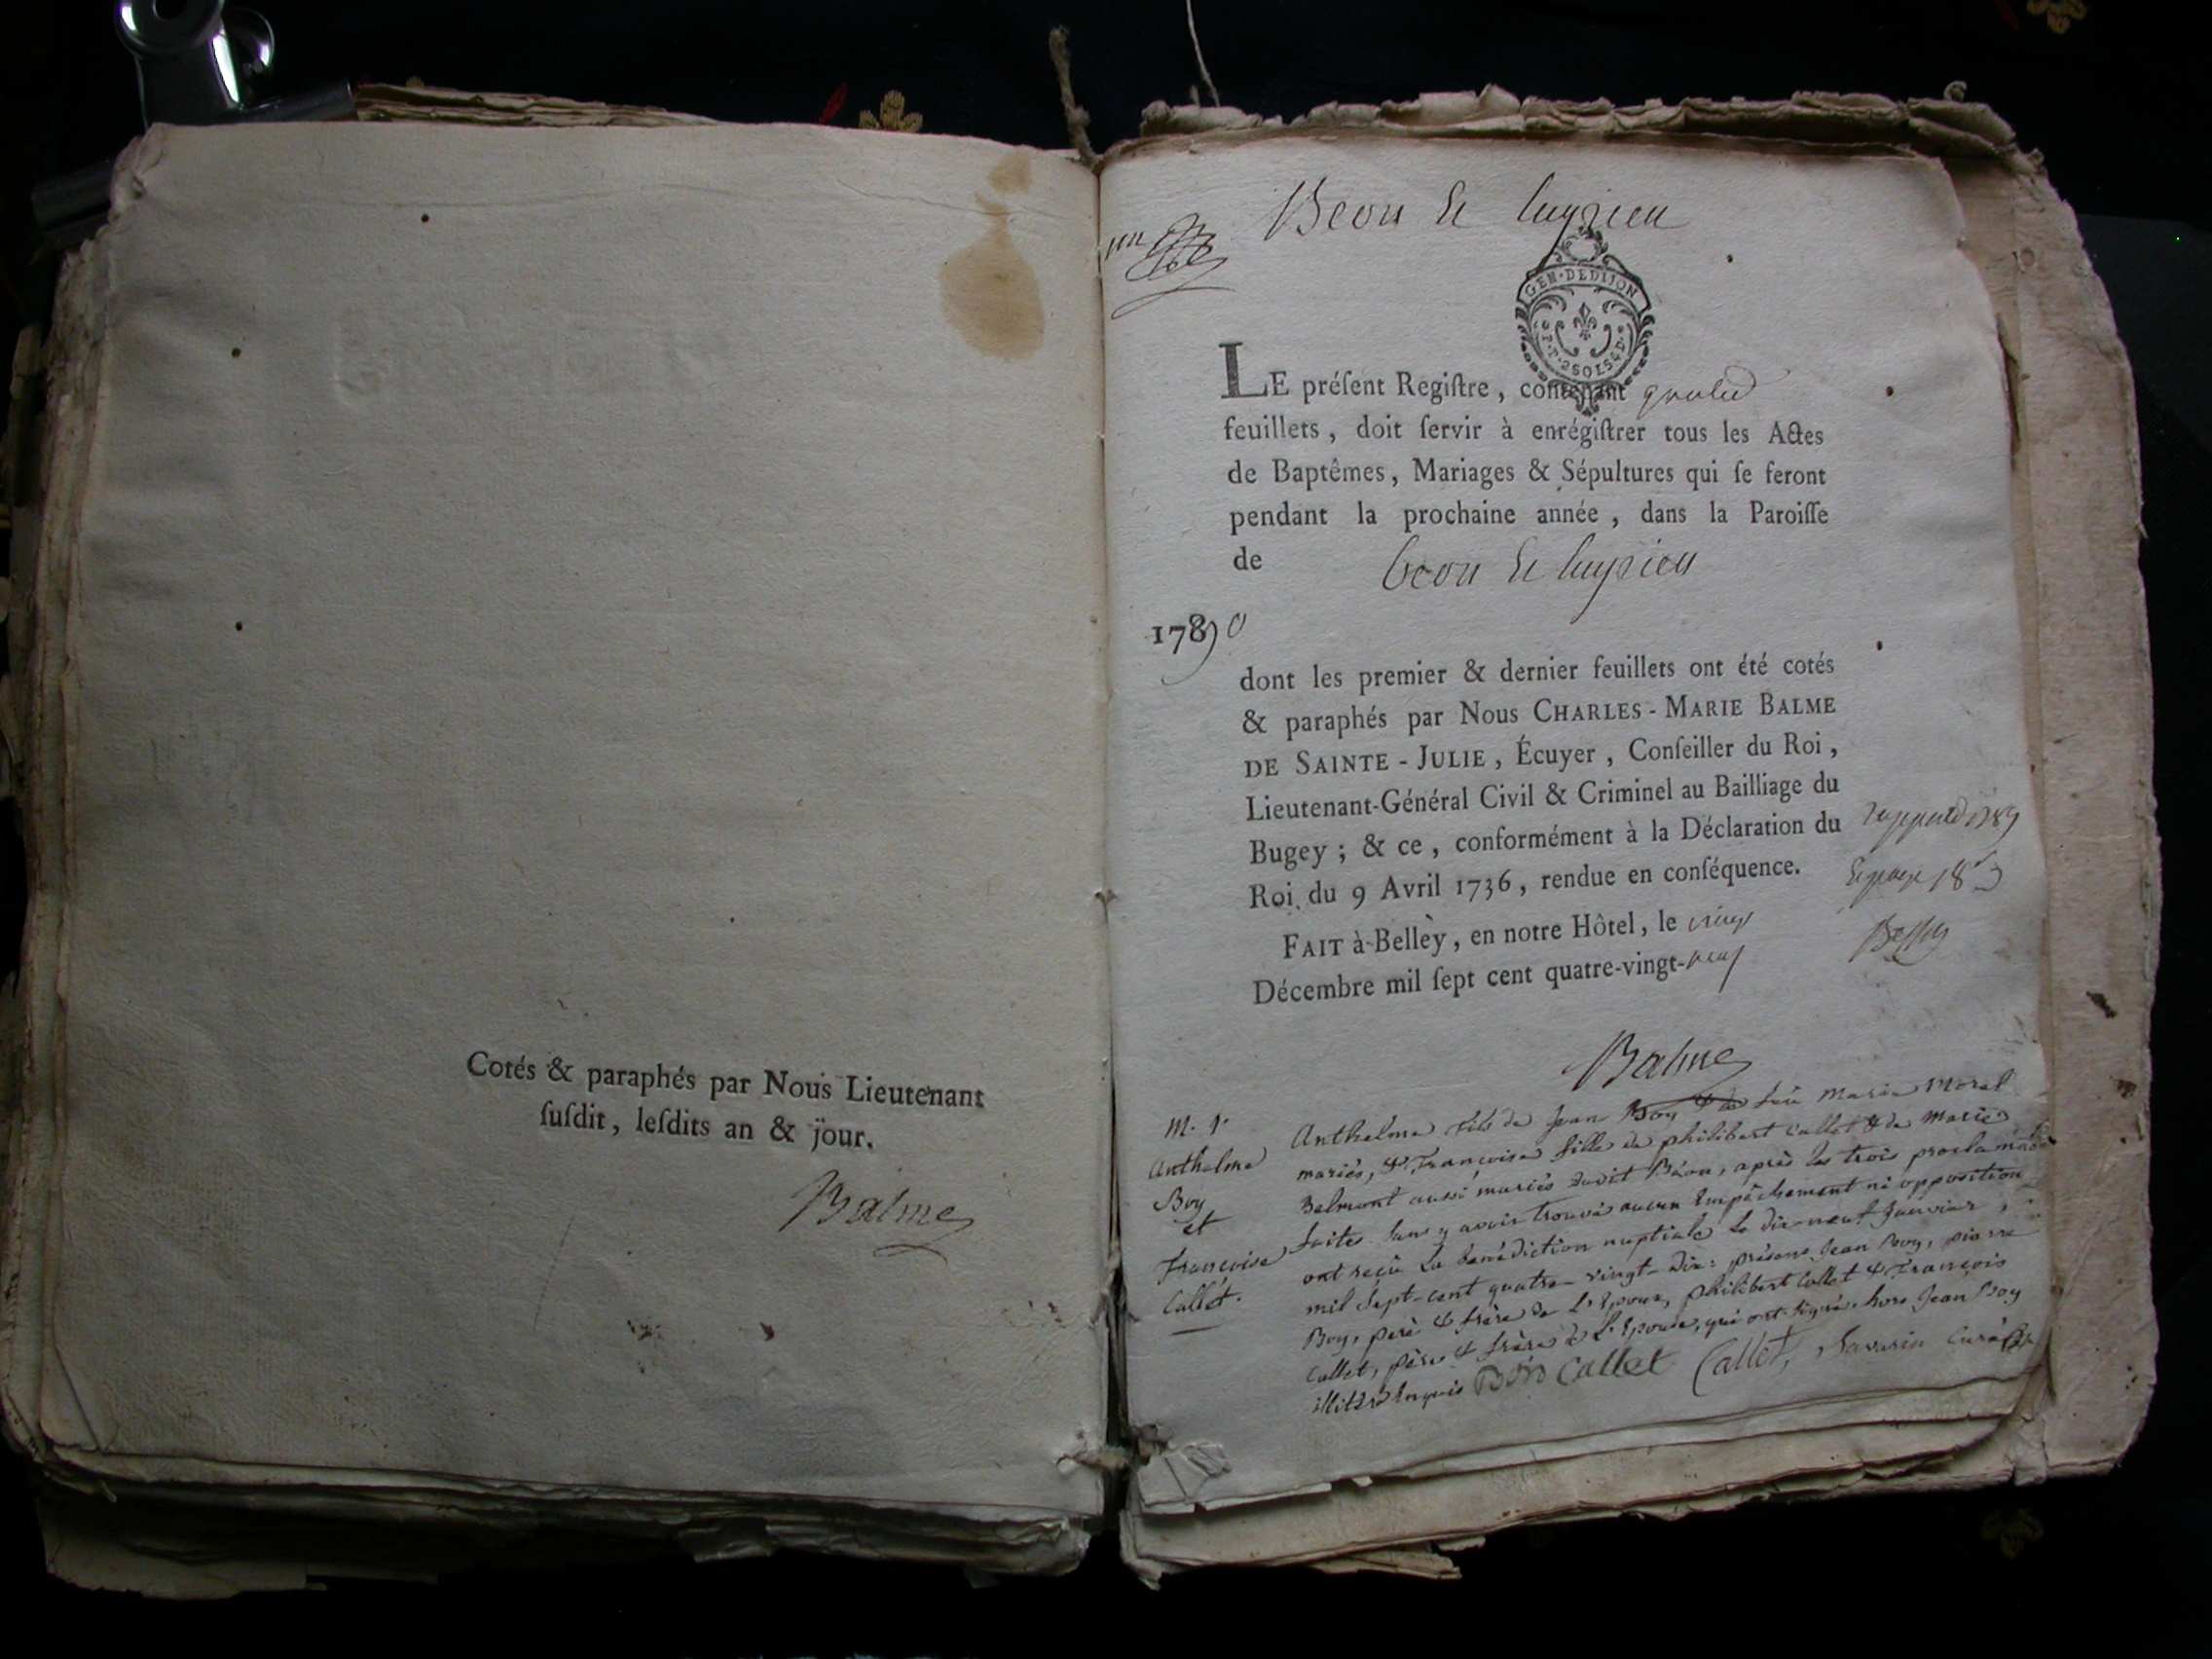 Cotés & paraphés par Nous Lieutenant
ſuſdit, leſdits an & jour.
Balme
un
Beon et luyrieu
GEN·DE DIJON
2 SOLS 4 D
LE préſent Regiſtre, contenant
feuillets, doit ſervir à enrégiſtrer tous les Actes
de Baptêmes, Mariages & Sépultures qui ſe feront
pendant la prochaine année, dans la Paroiſſe
de beon et luyrieu
1790
dont les premier & dernier feuillets ont été cotés
& paraphés par Nous CHARLES-MARIE BALME
DE SAINTE-JULIE, Écuyer, Conſeiller du Roi,
Lieutenant-Général Civil & Criminel au Bailliage du
Bugey; & ce, conformément à la Déclaration du
Roi du 9 Avril 1736, rendue en conſéquence.
FAIT à Belley, en notre Hôtel, le vingt
Décembre mil ſept cent quatre-vingt-neuf
Balme
M. 1.
Anthelme
Boy
et
Françoise
Callet.
Anthelme fils de Jean Boy & de feüe Marie Morel
mariés, & Françoise fille de philibert Callet & de Marie
Belmont aussi mariés dudit Béon, après les trois proclamations
faites sans y avoir trouvé aucun Empêchement ni opposition
ont reçû La bénédiction nuptiale le dix-neuf Janvier,
mil sept-cent quatre-vingt-dix: présens Jean Boy, pierre
Boy, père & frère de L'Epoux, philibert Callet & François
Callet, père & frère de L'Epouse, qui ont signés hors Jean Boy
illitéré Enquis Boy Callet Callet, Savarin Curé